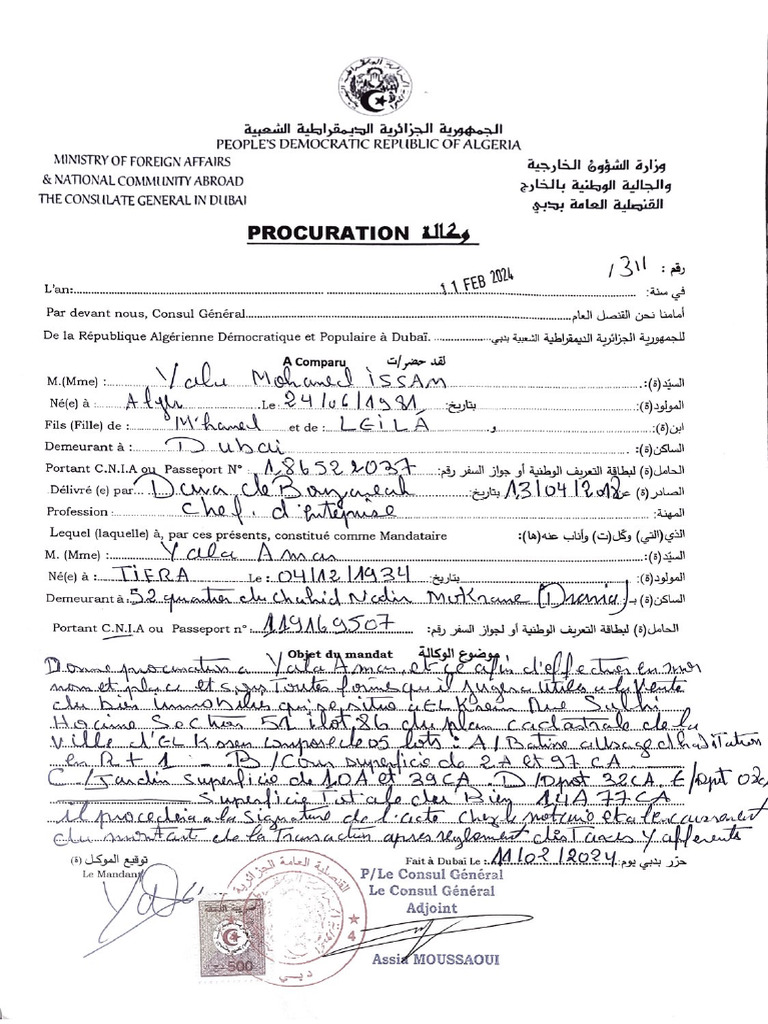 الجمهورية الجزائرية الديمقراطية الشعبية
PEOPLE'S DEMOCRATIC REPUBLIC OF ALGERIA
MINISTRY OF FOREIGN AFFAIRS
& NATIONAL COMMUNITY ABROAD
THE CONSULATE GENERAL IN DUBAI
وزارة الشؤون الخارجية
والجالية الوطنية بالخارج
القنصلية العامة بدبي
PROCURATION وكالة
رقم : 1311
L'an: 11 FEB 2024 في سنة:
Par devant nous, Consul Général أمامنا نحن القنصل العام
De la République Algérienne Démocratique et Populaire à Dubaï. للجمهورية الجزائرية الديمقراطية الشعبية بدبي
A Comparu لقد حضر/ت
M.(Mme) : Yala Mohamed ISSAM السيّد(ة):
Né(e) à : Alger Le : 24/06/1981 بتاريخ: المولود(ة):
Fils (Fille) de : M'hamed et de : LEILA و ابن(ة):
Demeurant à : Dubai الساكن(ة):
Portant C.N.I.A ou Passeport N° : 186522037 الحامل(ة) لبطاقة التعريف الوطنية أو جواز السفر رقم:
Délivré (e) par : Daira de Bouzareah 13/04/2018 بتاريخ: الصادر (ة) عن
Profession : Chef d'Entreprise المهنة:
Lequel (laquelle) à, par ces présents, constitué comme Mandataire الذي(التي) وكّل(ت) وأناب عنه(ها):
M. (Mme) : Yala Amar السيّد(ة):
Né(e) à : TIERA Le : 04/12/1934 بتاريخ: المولود(ة):
Demeurant à : 52 quartier du chahid Nadir Mokrane (Draria) الساكن(ة)
Portant C.N.I.A ou Passeport n° : 119169507 الحامل(ة) لبطاقة التعريف الوطنية أو لجواز السفر رقم:
Objet du mandat موضوع الوكالة
Donne procuration a Yala Amar, et ce afin d'effectuer en mon
nom et place et signer Toutes formes qu'il jugera utiles a la Vente
du bien Immobilier qui se situe a EL Kseur Rue
Hocine Section 51 ilot 86 du plan cadastrale de la
ville d'EL Kseur compose de 05 lots : A/Batisse a usage d'habitation
en R+1 - B/Cour superficie de 2A et 97 CA
C/Jardin superficie de 10A et 39CA. D/Dpot 32CA E/Dpt
Superficie Totale du Bien 14A 77CA
Il procedera a la Signature de l'acte chez le notaire et a l'encaissement
du montant de la Transaction apres reglement des Taxes Y afferents
توقيع الموكل (ة)
Le Mandant
Fait à Dubaï Le : 11/02/2024 حرّر بدبي يوم:
P/Le Consul Général
Le Consul Général
Adjoint
Assia MOUSSAOUI
القنصلية العامة الجزائرية
دبي
4
500